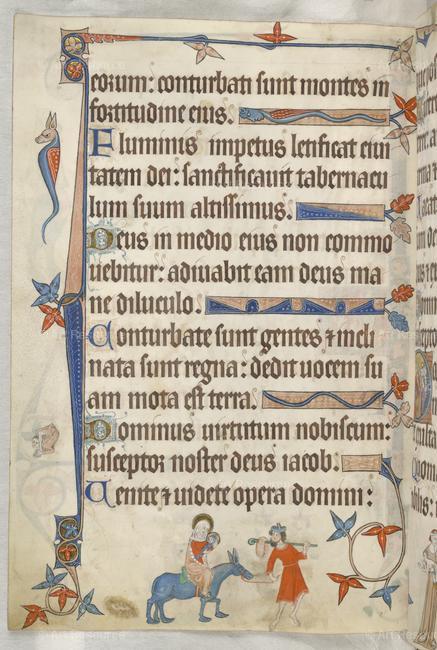 eorum: conturbati sunt montes in
fortitudine eius.
Fluminis impetus letificat ciui
tatem dei: sanctificauit tabernacu
lum suum altissimus.
Deus in medio eius non commo
uebitur: adiuabit eam deus ma
ne diluculo.
Conturbate sunt gentes ⁊ incli
nata sunt regna: dedit uocem su
am mota est terra.
Dominus uirtutum nobiscum:
susceptor noster deus iacob:
Uenite ⁊ uidete opera domini: